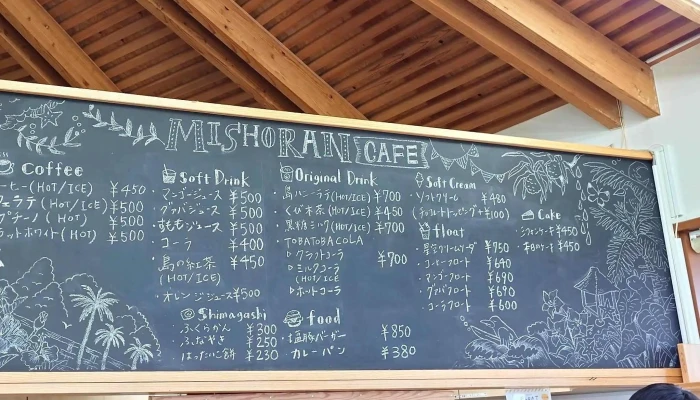 MISHORAN CAFE
Coffee
ーヒー(HOT/ICE) ¥450
フェラテ(HOT/ICE) ¥500
プチーノ(HOT) ¥500
ラットホワイト(HOT) ¥500
Soft Drink
・マンゴージュース ¥500
・グァバジュース ¥500
・すももジュース ¥500
・コーラ ¥400
・島の紅茶 ¥450
(HOT/ICE)
・オレンジジュース ¥500
Shimagashi
・ふくらかん ¥300
・ふなやき ¥250
・はったいこ餅 ¥230
Original Drink
・島ハニーラテ(HOT/ICE) ¥700
・くび木茶(HOT/ICE) ¥450
・黒糖ミルク(HOT/ICE) ¥700
・TOBATOBA COLA
▷クラフトコーラ ¥700
▷ミルクコーラ
(HOT/ICE)
▷ホットコーラ
food
・塩豚バーガー ¥850
カレーパン ¥380
Soft Cream
・ソフトクリーム ¥480
(チョコレートトッピング+¥100)
float
・星空クリームソーダ ¥750
・コーヒーフロート ¥690
・マンゴーフロート ¥690
・グァバフロート ¥690
・コーラフロート ¥600
Cake
・シフォンケーキ ¥450
・本日のケーキ ¥450